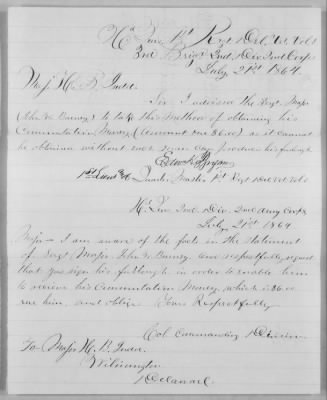 Hd Qurs 1st Regt Del. Vet. Vols
3rd Brig 2nd Div 2nd Corps
July 21st 1864
Maj. H. B. Judd.
Sir I advised the Sergt. Major
John W. Barney to take this method of obtaining his
Commutation Money (amount due $ ) as it cannot
be obtained without our Major Judd's his furlough
Edwd Bryan
1st Lieut & Quarter Master 1st Regt Del Vet Vols
Hd Qrs 2nd Div. 2nd Army Corps
July 21st 1864
Major I am aware of the facts in the Statement
of Sergt Major John W. Barney and respectfully request
that you sign his furlough in order to enable him
to receive his Commutation Money, which is
due him, and oblige Yours Respectfully
Col. Commanding Division
To Major H. B. Judd.
Wilmington
Delaware